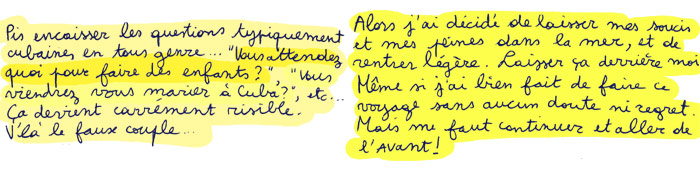 Pis encaisser les questions typiquement
cubaines en tous genre... "Vous attendez
quoi pour faire des enfants?", "Vous
viendrez vous marier à Cuba?", etc...
Ça devient carrément risible.
V'là le faux couple...
Alors j'ai décidé de laisser mes soucis
et mes peines dans la mer, et de
rentrer légère. Laisser ça derrière moi
Même si j'ai bien fait de faire ce
voyage sans aucun doute ni regret.
Mais me faut continuer et aller de
l'Avant!